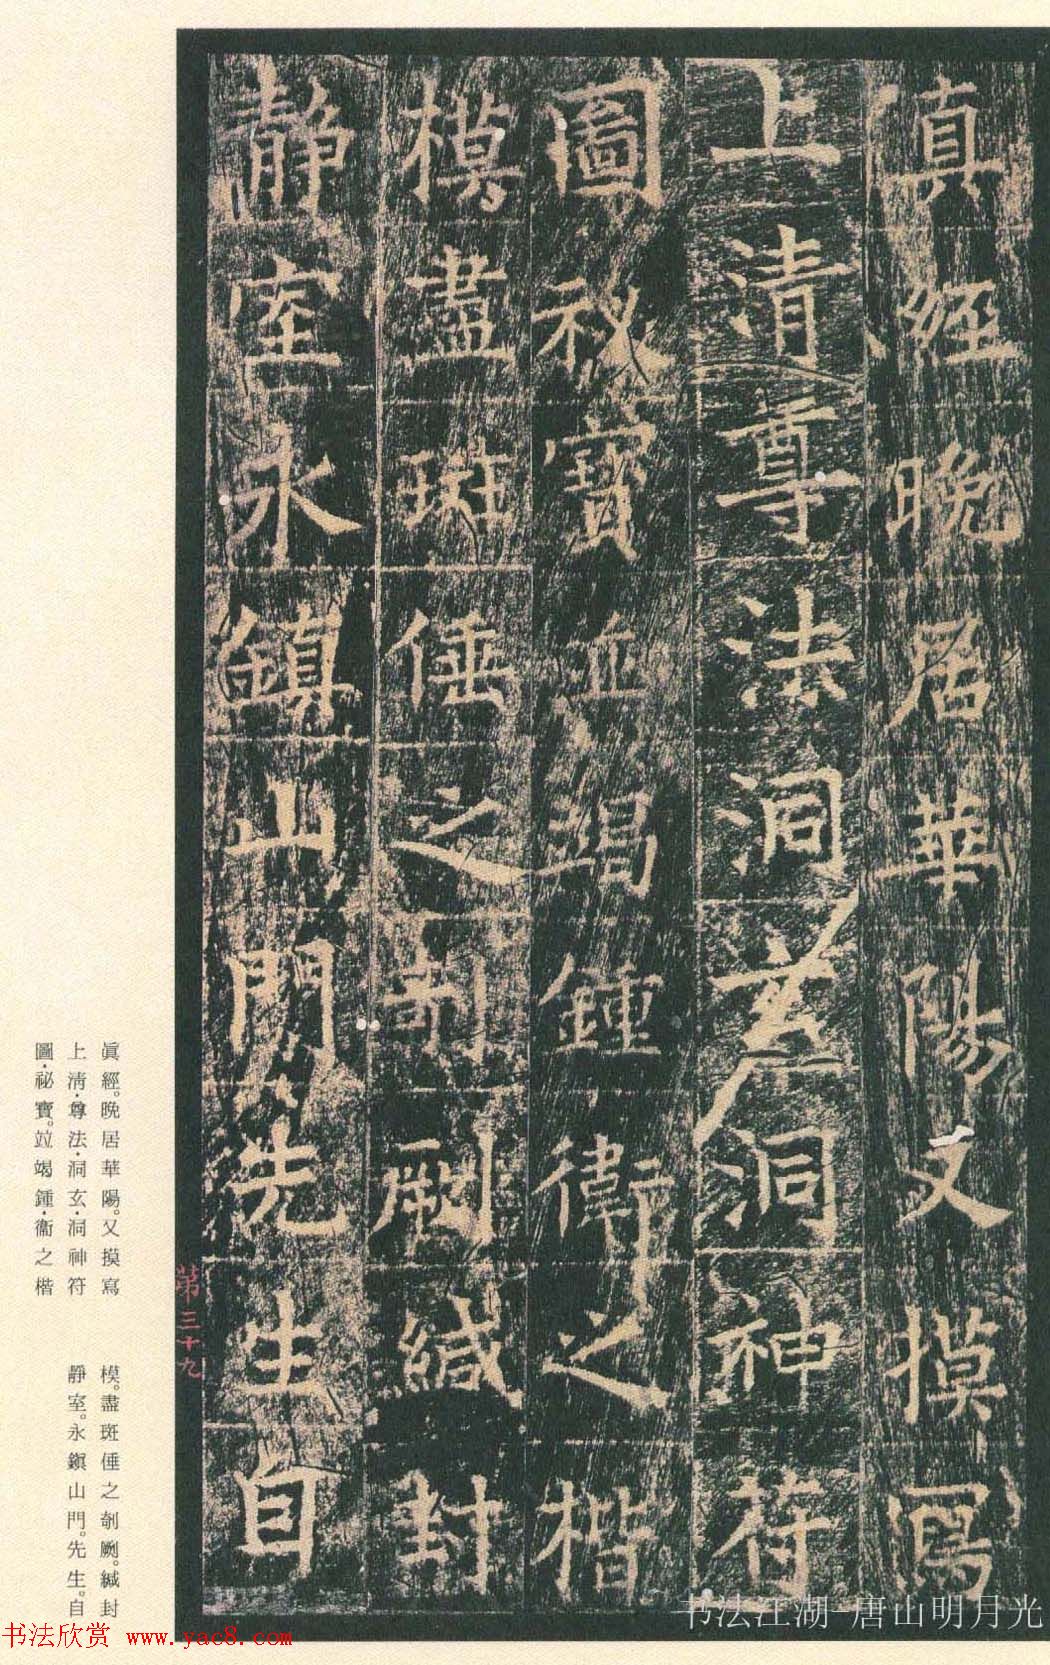 真經晚居華陽又摸寫
上清尊法洞玄洞神符
圖祕寶並竭鍾衛之楷
模盡斑倕之剞劂緘封
靜室永鎮山門先生自
第三十九
眞經。晚居華陽。又摸寫
上淸·尊法·洞玄·洞神符
圖·祕寶。竝竭鍾·衞之楷
模。盡斑倕之剞劂。緘封
靜室。永鎭山門。先生。自
书法江湖-唐山明月光
书法欣赏 www.yac8.com